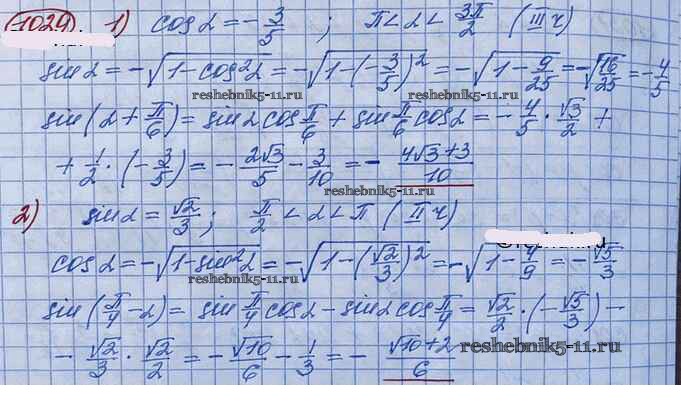 1029 1) cos α = -3/5 ; π < α < 3π/2 (III ч)
sin α = -√(1-cos²α) = -√(1-(-3/5)²) = -√(1-9/25) = -√(16/25) = -4/5
reshebnik5-11.ru
sin(α+π/6) = sin α cos π/6 + sin π/6 cos α = -4/5 · √3/2 +
+ 1/2 · (-3/5) = -2√3/5 - 3/10 = -(4√3+3)/10
reshebnik5-11.ru
2) sin α = √2/3 ; π/2 < α < π (II ч)
cos α = -√(1-sin²α) = -√(1-(√2/3)²) = -√(1-4/9) = -√5/3
reshebnik5-11.ru
sin(π/4-α) = sin π/4 cos α - sin α cos π/4 = √2/2 · (-√5/3) -
- √2/3 · √2/2 = -√10/6 - 1/3 = -(√10+2)/6
reshebnik5-11.ru